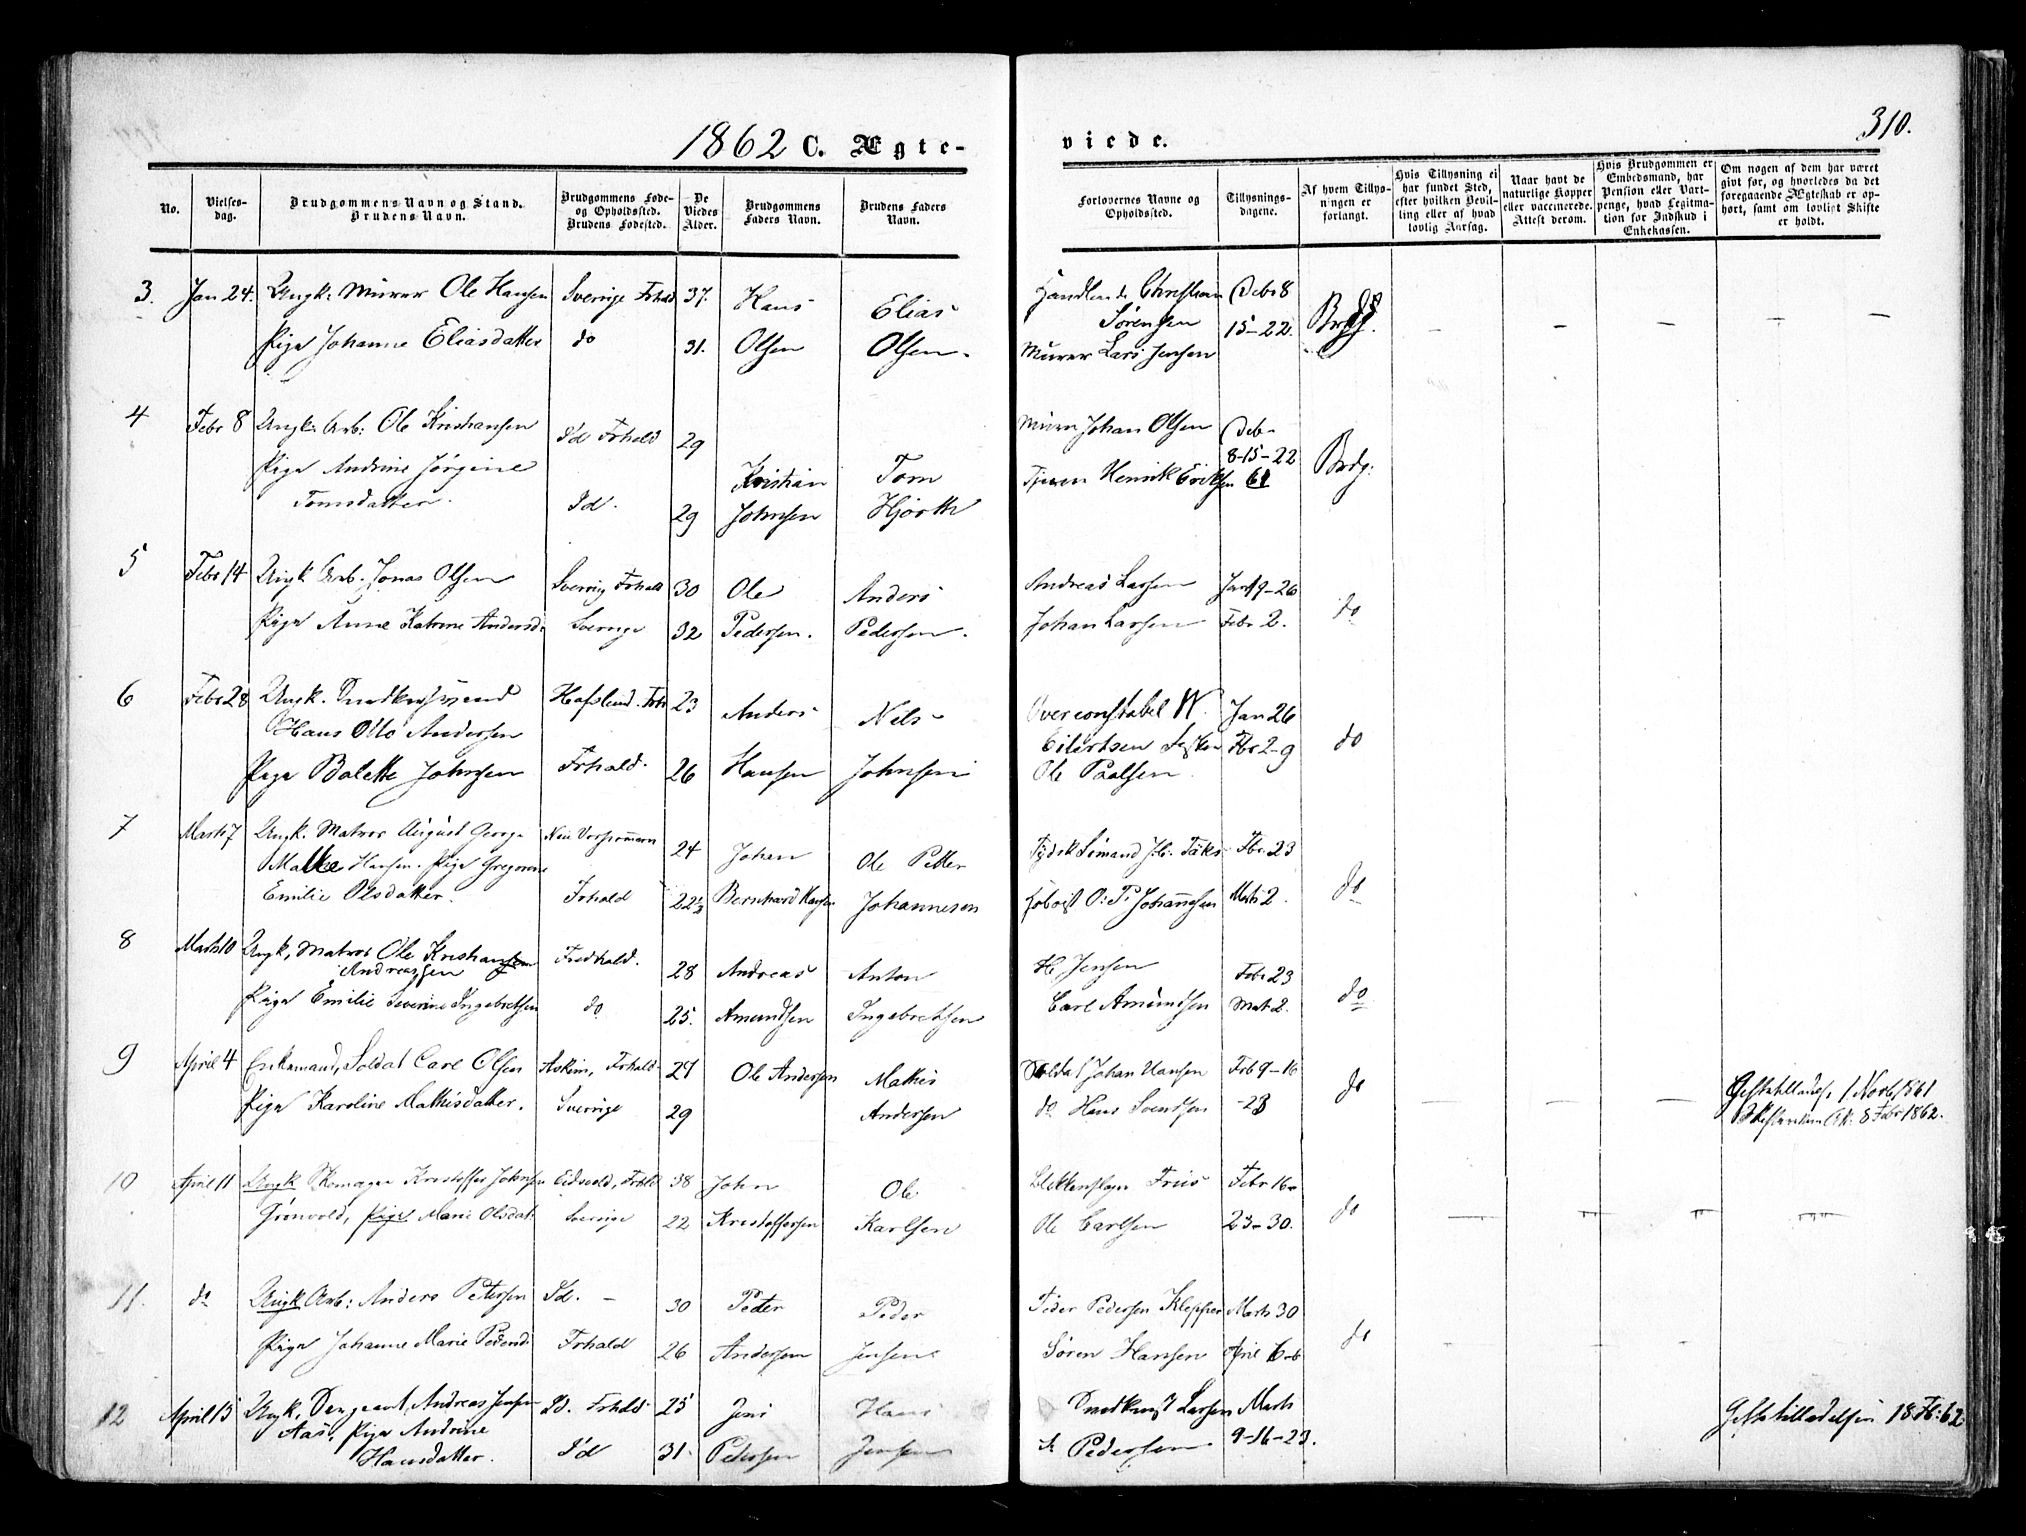 1862 C. Ægte-
viede.
310.
No.
Vielses-
dag.
Brudgommens Navn og Stand.
Brudens Navn.
Brudgommens Føde-
og Opholdssted.
Brudens Fødested.
De
Viedes
Alder.
Brudgommens
Faders Navn.
Brudens Faders
Navn.
Forlovernes Navne og
Opholdssted.
Tillysnings-
dagene.
Af hvem Tillys-
ningen er
forlangt.
Hvis Tillysning ei
har fundet Sted,
efter hvilken Bevil-
ling eller af hvad
lovlig Aarsag.
Naar havt de
naturlige Kopper
eller vaccinerede.
Attest derom.
Hvis Brudgommen er
Embedsmand, har
Pension eller Vart-
penge, hvad Legitima-
tion for Indskud i
Enkekassen.
Om nogen af dem har været
givt før, og hvorledes da det
foregaaende Ægteskab er op-
hørt, samt om lovligt Skifte
er holdt.
3. Jan 24. Ungk: Murer Ole Hansen Sverrige Frhald 37. Hans Elias Handlende Christian Debr 8
Sørensen 15-22. Brdg.
Pige Johanne Eliasdatter do 31. Olsen Olsen. Murer Lars Jensen
4 Febr 8 Ungk: Arb: Ole Kristiansen Id Frhald 29 Murer Johan Olsen Deb-
8-15-22 Brdg:
Pige Andrine Jørgine Kristian Tom Henrik Eriksen 61
Tomsdatter. Id. 29 Johnsen Hjorth
5 Febr 14 Ungk Arb. Jonas Olsen Sverrig Frhald 30 Ole Anders Andreas Larsen Jan 19-26 do
Pige Anne Katrine Andersd. Sverrige 32 Pedersen. Pedersen. Johan Larsen Febr 2.
6 Febr 28 Ungk. Hafslund. Frh 23 Anders Nils Overconstabel Jan 26
Hans Otto Andersen Eilertsen Fbr 2-9 do
Pige Bolette Johnsen Frhald. 26 Hansen Johnsen Ole Paalsen
7 Marts 7 Ungk. Matros August George Neu Vorpommern 24 Johan Ole Petter Fbr 23
Malke Hansen. Pige Gregorine
Emilie Olsdatter. Frhald 22½ Bernhard Hansen Johannesen O: P. Johannesen Marts 2. do
8 Marts 10 Ungk, Matros Ole Kristiansen Fredhald. 28 Andreas Anton H. Jensen Febr 23
Andreassen
Pige Emilie Severine Ingebretsen do 25. Amundsen Ingebretsen Carl Amundsen Mart 2. do
9 April 4 Enkemand, Soldat Carl Olsen Askim, Frhald 27 Ole Andersen Mathis Soldat Johan Hansen Feb 9-16 do
Pige Karoline Mathisdatter. Sverrige 29 Andersen do Hans Svendsen -23 Giftetillades. 1 Novb 1861
8 Febr 1862.
10 April 11 Ungk Skomager Kristoffer Johnsen Eidsvold, Frhld 38 John Ole Friis Febr 16- do
Grønvold, Pige Marie Olsdat. Sverrige 22 Kristoffersen Karlsen Ole Carlsen 23-30.
11. do Ungk Arb: Anders Petersen Id. - 30 Peter Peder Peder Pedersen Klepper Marts 30
Pige Johanne Marie Pedersd Frhald 26 Andersen Jensen Søren Hansen April 6 do
12 April 15 Ungk, Sergeant Andreas Jensen Id. Frhald 25 Jens Hans Larsen Marts
Aas, Pige Andrine 9-16-23.
Hansdatter. Id 31. Petersen Jensen Pedersen Giftetilladelsen 18 Fb: 62